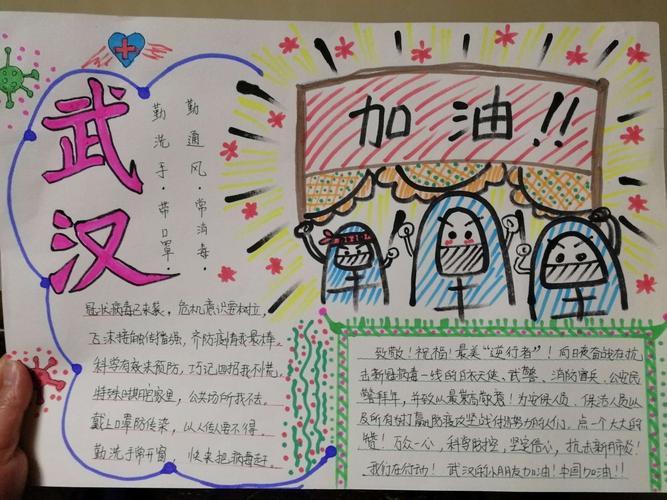 武汉
加油!!
勤通风·常消毒·
勤洗手·带口罩·
冠状病毒已来袭，危机意识要树立，
飞沫接触传播强，齐防疫情我最棒。
科学有效来预防，巧记四招我不慌，
特殊时期家里，公共场所我不去。
戴上口罩防传染，人传人要不得。
勤洗手常开窗，快来把病毒赶。
致敬！祝福！最美“逆行者”！向日夜奋战在抗
击新冠病毒一线的白衣天使、武警、消防官兵、公安民
警拜年，并致以最崇高敬意！为安保人员、保洁人员以
及所有为打赢防疫攻坚战付出努力的人们，点一个大大的
赞！万众一心，科学防控，坚定信心，抗击新冠肺炎！
我们在行动！武汉的小朋友加油！中国加油！！